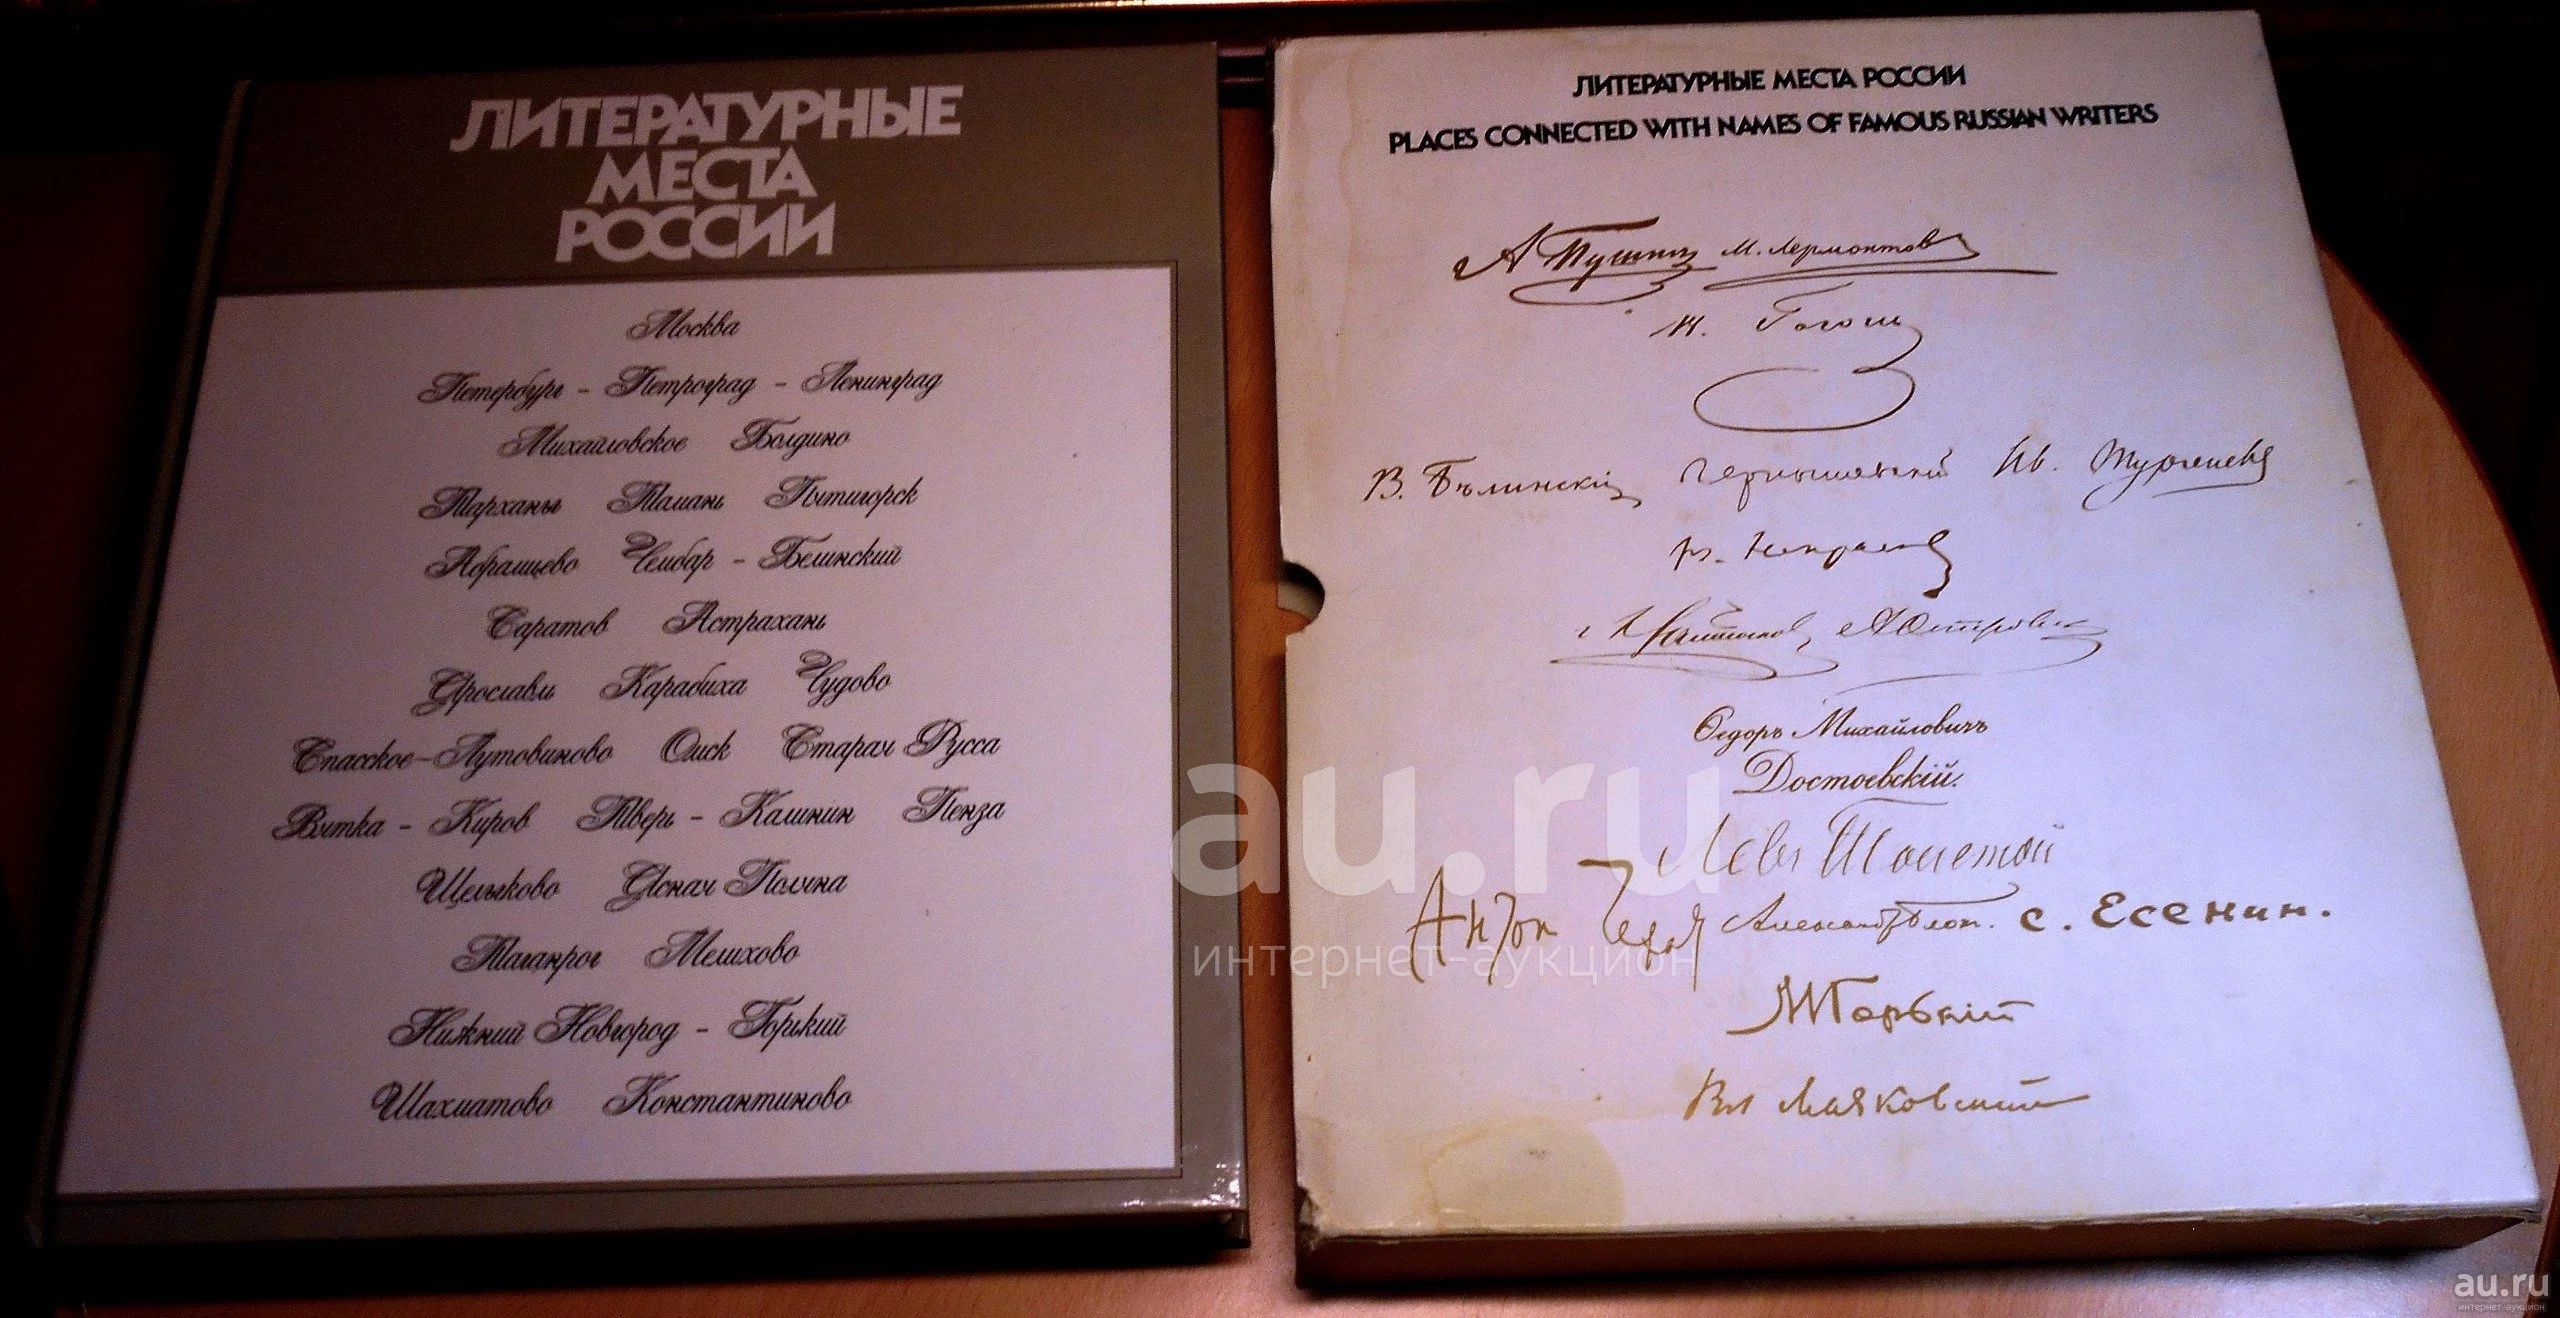 ЛИТЕРАТУРНЫЕ
МЕСТА
РОССИИ
Москва
Петербург - Петроград - Ленинград
Михайловское Болдино
Тарханы Тамань Пятигорск
Абрамцево Чембар - Белинский
Саратов Астрахань
Ярославль Карабиха Чудово
Спасское-Лутовиново Омск Старая Русса
Вятка - Киров Тверь - Калинин Пенза
Щелыково Ясная Поляна
Таганрог Мелихово
Нижний Новгород - Горький
Шахматово Константиново
ЛИТЕРАТУРНЫЕ МЕСТА РОССИИ
PLACES CONNECTED WITH NAMES OF FAMOUS RUSSIAN WRITERS
А Пушкин М. Лермонтов
Н. Гоголь
В. Бѣлинскій Чернышевскій Ив. Тургеневъ
Н. Некрасов
Салтыков А Островск
Ѳедоръ Михайловичъ
Достоевскій.
Левъ Толстой
Антон Чехов Александръ Блок. С. Есенин.
М Горькiй
Вл Маяковский
au.ru
интернет-аукцион
au.ru
интернет-аукцион